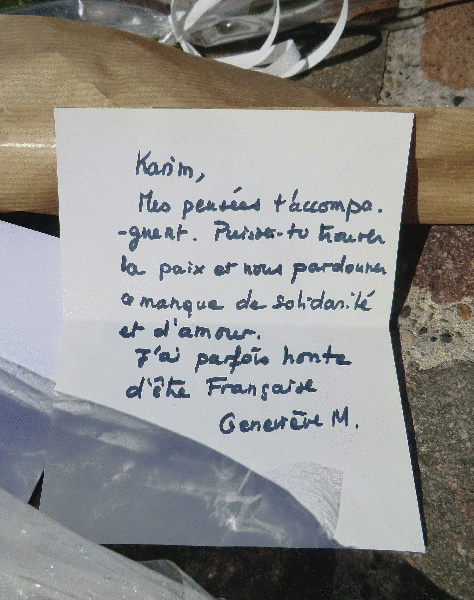 Karim,
Mes pensées t'accompa.
-gnent. Puisses-tu trouver
la paix et nous pardonner
ce manque de solidarité
et d'amour.
J'ai parfois honte
d'être Française
Geneviève M.